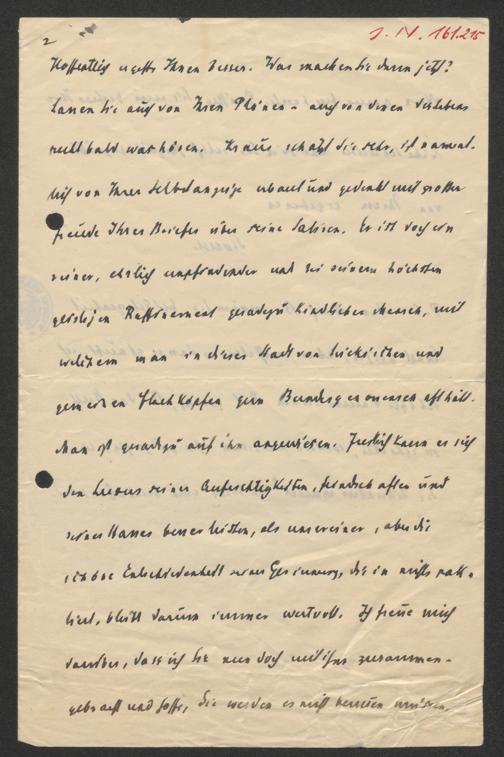 2
J. N. 161.215
Hoffentlich geht's Ihnen besser. Was machen Sie denn jetzt?
Lassen Sie auch von Ihren Plänen – auch von denen des Lebens
recht bald was hören. Kraus schätzt Sie sehr, ist nament-
lich von Ihrer Selbstanzeige erbaut und gedenkt mit großer
Freude Ihres Briefes über seine Satiren. Er ist doch ein
reiner, ehrlich empfindender und bei seinem höchsten
geistigen Raffinement geradezu kindlicher Mensch, mit
welchem man in dieser Stadt von tückischen und
gemeinen Flachköpfen gern Bundesgenossenschaft hält.
Man ist geradezu auf ihn angewiesen. Freilich kann er sich
den Luxus seiner Aufrichtigkeiten, Feindschaften und
seines Hasses besser leisten, als unsereiner, aber die
schöne Entschiedenheit seiner Gesinnung, die in nichts pakt-
iert, bleibt darum immer wertvoll. Ich freue mich
darüber, dass ich Sie nun doch mit ihm zusammen-
gebracht und hoffe, Sie werden es nicht bereuen müssen.